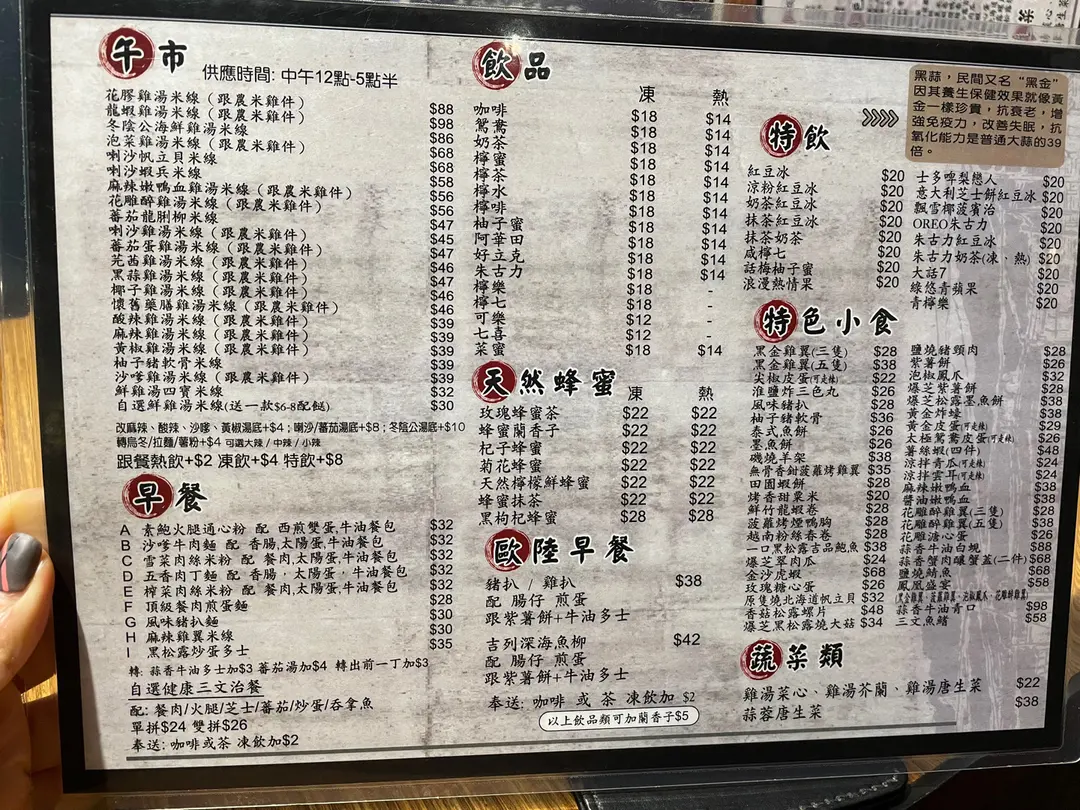 午市 供應時間: 中午12點-5點半
花膠雞湯米線（跟農米雞件） $88
龍蝦雞湯米線（跟農米雞件） $98
冬陰公海鮮雞湯米線 $86
泡菜雞湯米線（跟農米雞件） $68
喇沙帆立貝米線 $68
喇沙蝦兵米線 $58
麻辣嫩鴨血雞湯米線（跟農米雞件） $56
花雕醉雞湯米線（跟農米雞件） $56
蕃茄龍脷柳米線 $47
喇沙雞湯米線（跟農米雞件） $45
蕃茄蛋雞湯米線（跟農米雞件） $47
芫茜雞湯米線（跟農米雞件） $46
黑蒜雞湯米線（跟農米雞件） $47
椰子雞湯米線（跟農米雞件） $46
懷舊藥膳雞湯米線（跟農米雞件） $46
酸辣雞湯米線（跟農米雞件） $39
麻辣雞湯米線（跟農米雞件） $39
黃椒雞湯米線（跟農米雞件） $39
柚子豬軟骨米線 $39
沙嗲雞湯米線（跟農米雞件） $39
鮮雞湯四寶米線 $32
自選鮮雞湯米線(送一款$6-8配餸) $30
改麻辣、酸辣、沙嗲、黃椒湯底+$4；喇沙/蕃茄湯底+$8；冬陰公湯底+$10
轉烏冬/拉麵/薯粉+$4 可選大辣 / 中辣 / 小辣
跟餐熱飲+$2 凍飲+$4 特飲+$8
早餐
A 素鮑火腿通心粉 配 西煎雙蛋,牛油餐包 $32
B 沙嗲牛肉麵 配 香腸,太陽蛋,牛油餐包 $32
C 雪菜肉絲米粉 配 餐肉,太陽蛋,牛油餐包 $32
D 五香肉丁麵 配 香腸，太陽蛋，牛油餐包 $32
E 榨菜肉絲米粉 配 餐肉,太陽蛋,牛油餐包 $32
F 頂級餐肉煎蛋麵 $28
G 風味豬扒麵 $30
H 麻辣雞翼米線 $30
I 黑松露炒蛋多士 $35
轉: 蒜香牛油多士加$3 蕃茄湯加$4 轉出前一丁加$3
自選健康三文治餐
配: 餐肉/火腿/芝士/蕃茄/炒蛋/吞拿魚
單拼$24 雙拼$26
奉送: 咖啡或茶 凍飲加$2
飲品
凍 熱
咖啡 $18 $14
鴛鴦 $18 $14
奶茶 $18 $14
檸蜜 $18 $14
檸茶 $18 $14
檸水 $18 $14
檸啡 $18 $14
柚子蜜 $18 $14
阿華田 $18 $14
好立克 $18 $14
朱古力 $18 $14
檸樂 $18 -
檸七 $18 -
可樂 $12 -
七喜 $12 -
菜蜜 $18 $14
天然蜂蜜 凍 熱
玫瑰蜂蜜茶 $22 $22
蜂蜜蘭香子 $22 $22
杞子蜂蜜 $22 $22
菊花蜂蜜 $22 $22
天然檸檬鮮蜂蜜 $22 $22
蜂蜜抹茶 $22 $22
黑枸杞蜂蜜 $28 $28
歐陸早餐
豬扒 / 雞扒 $38
配 腸仔 煎蛋
跟紫薯餅+牛油多士
吉列深海魚柳 $42
配 腸仔 煎蛋
跟紫薯餅+牛油多士
奉送: 咖啡 或 茶 凍飲加 $2
以上飲品類可加蘭香子$5
黑蒜，民間又名“黑金”
因其養生保健效果就像黃
金一樣珍貴，抗衰老，增
強免疫力，改善失眠，抗
氧化能力是普通大蒜的39
倍。
特飲
紅豆冰 $20
涼粉紅豆冰 $20
奶茶紅豆冰 $20
抹茶紅豆冰 $20
抹茶奶茶 $20
咸檸七 $20
話梅柚子蜜 $20
浪漫熱情果 $20
士多啤梨戀人 $20
意大利芝士餅紅豆冰 $20
飄雪椰菠濱治 $20
OREO朱古力 $20
朱古力紅豆冰 $20
朱古力奶茶(凍、熱) $20
大話7 $20
綠悠青蘋果 $20
青檸樂 $20
特色小食
黑金雞翼(三隻) $28
黑金雞翼(五隻) $38
尖椒皮蛋(可走辣) $22
淮鹽炸三色丸 $26
風味豬扒 $28
柚子豬軟骨 $36
泰式魚餅 $28
墨魚餅 $28
磯燒羊架 $38
無骨香鉗菠蘿烤雞翼 $35
田園蝦餅 $28
烤香甜粟米 $20
鮮竹龍蝦卷 $28
菠蘿烤煙鴨胸 $28
越南粉絲春卷 $28
一口黑松露吉品鮑魚 $38
爆芝翠肉瓜 $24
金沙虎蝦 $68
玫瑰糖心蛋 $26
原隻燒北海道帆立貝 $32
香菇松露螺片 $48
爆芝黑松露燒大菇 $34
鹽燒豬頸肉 $28
紫薯餅 $26
泡椒鳳爪 $32
爆芝紫薯餅 $28
爆芝松露墨魚餅 $38
黃金炸蠔 $38
黃金皮蛋(可走辣) $29
太極鴛鴦皮蛋(可走辣) $26
薯絲蝦(四件) $48
涼拌青瓜(可走辣) $24
涼拌雲耳(可走辣) $24
麻辣嫩鴨血 $38
醬油嫩鴨血 $38
花雕醉雞翼(三隻) $28
花雕醉雞翼(五隻) $38
花雕溏心蛋 $26
蒜香牛油白蜆 $88
蒜香蟹肉釀蟹蓋(二件) $68
鹽燒鯖魚 $68
鳳凰盛宴 $58
(黑金雞翼、菠蘿雞翼、泡椒鳳爪、花雕醉雞翼)
蒜香牛油青口 $98
三文魚鰭 $58
蔬菜類
雞湯菜心、雞湯芥蘭、雞湯唐生菜 $22
蒜蓉唐生菜 $38